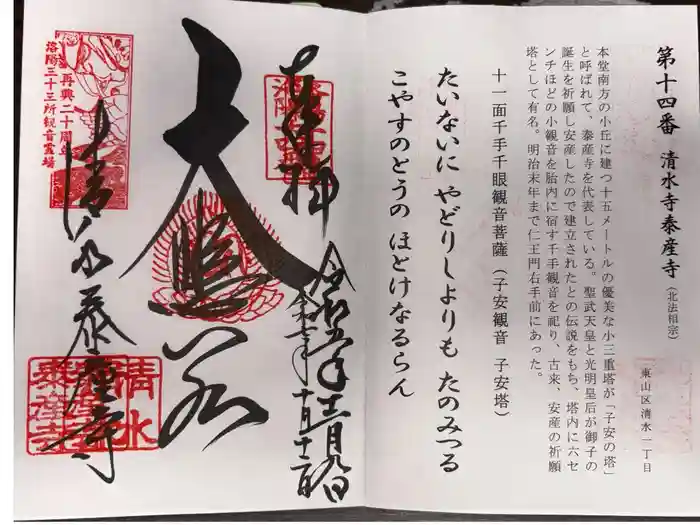 第十四番 清水寺泰産寺（北法相宗）
東山区清水一丁目
本堂南方の小丘に建つ十五メートルの優美な小三重塔が「子安の塔」
と呼ばれて、泰産寺を代表している。聖武天皇と光明皇后が御子の
誕生を祈願し安産したので建立されたとの伝説をもち、塔内に六セ
ンチほどの小観音を胎内に宿す千手観音を祀り、古来、安産の祈願
塔として有名。明治末年まで仁王門右手前にあった。
十一面千手千眼観音菩薩（子安観音 子安塔）
たいないに やどりしよりも たのみつる
こやすのとうの ほとけなるらん
奉拝
令和五年十一月九日
令和七年十月十二日
大悲殿
清水泰産寺
再興二十周年
洛陽三十三所観音霊場
清水
泰産寺